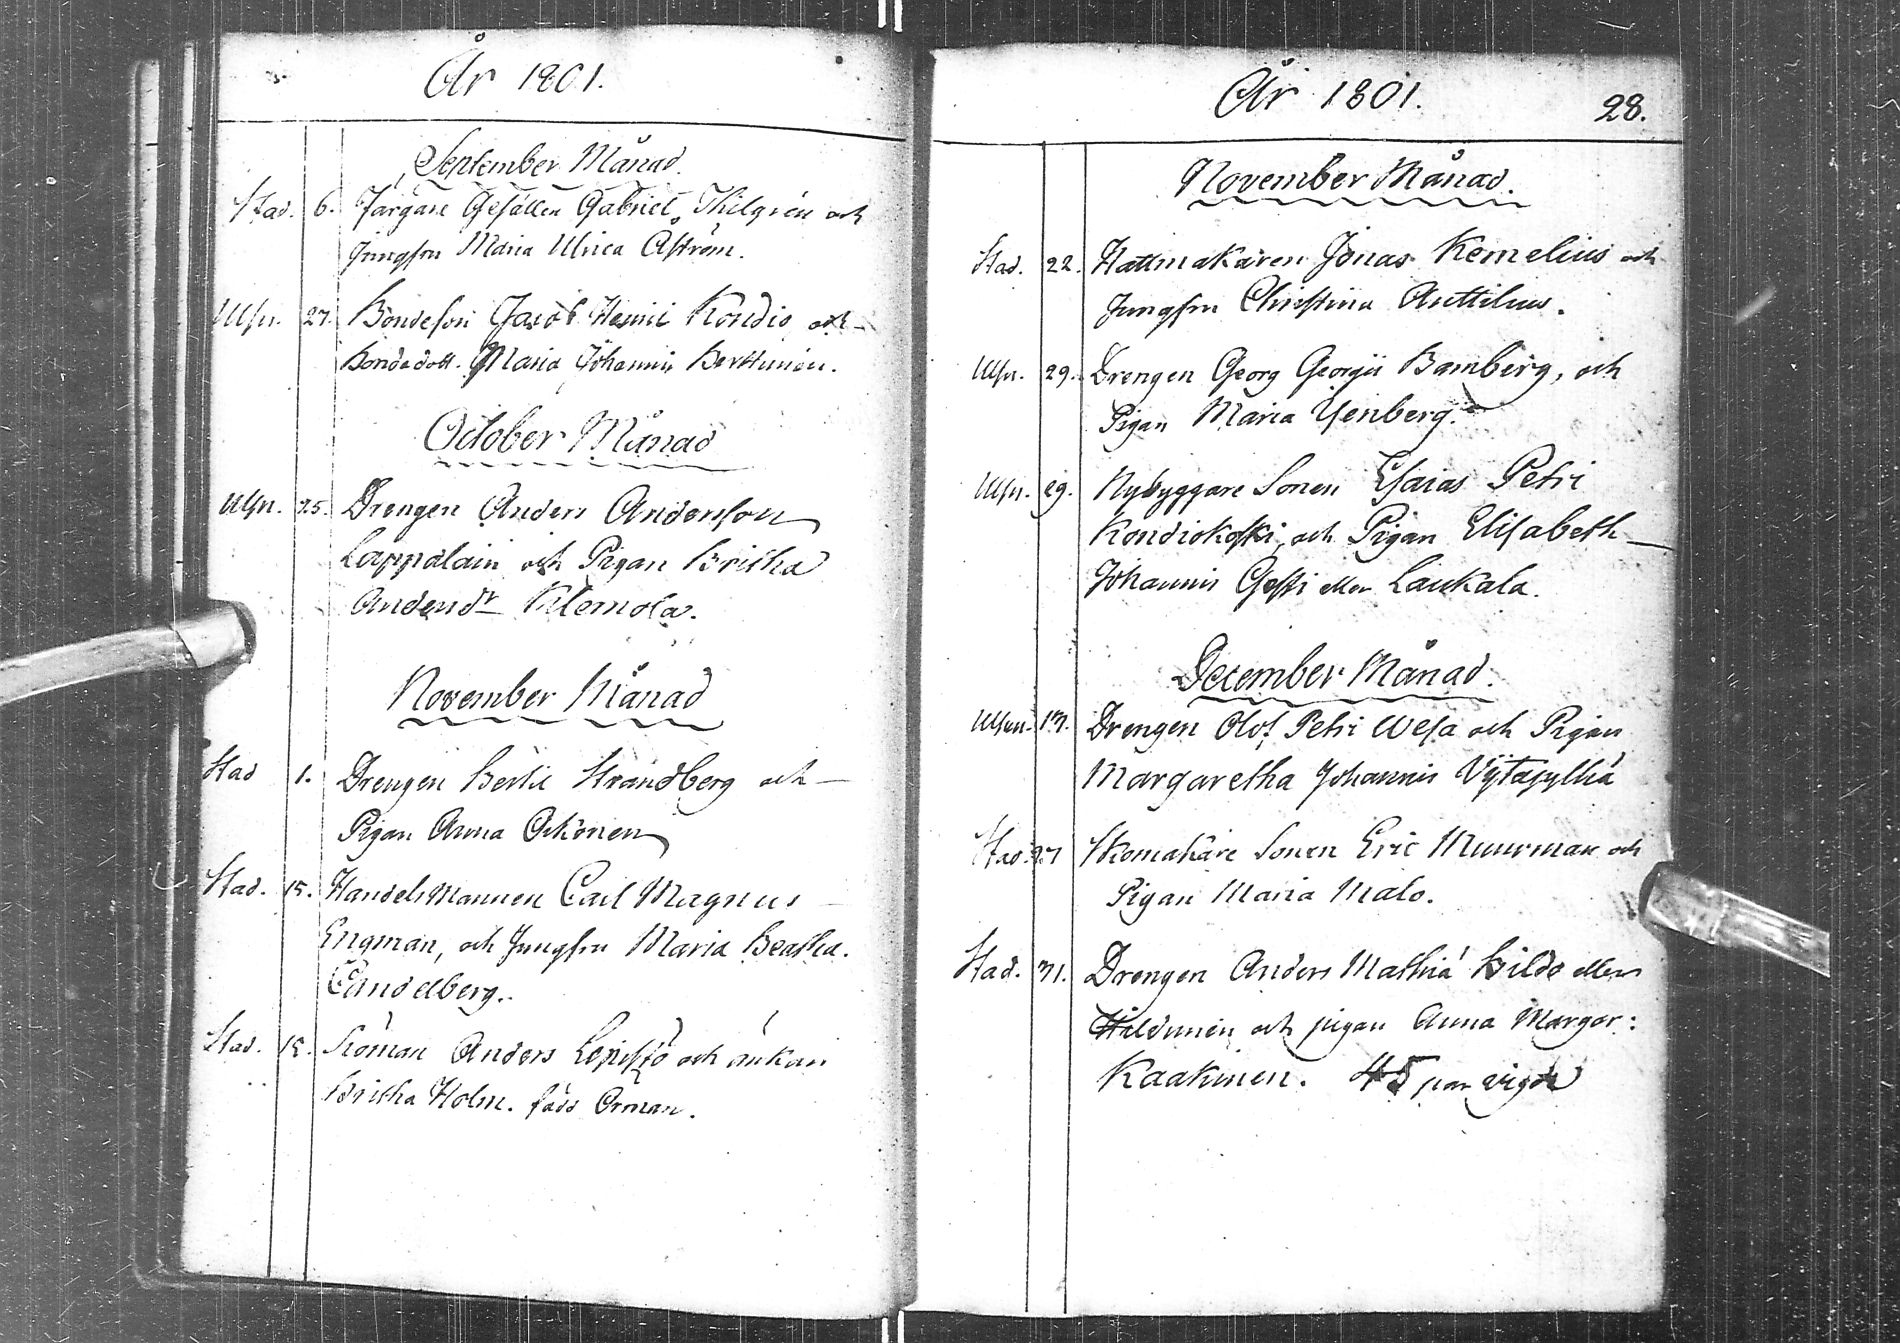 År 1801.
September Månad.
Stad. 6. Färgare Gesällen Gabriel Thilgrén och
Jungfru Maria Ulrica Åström.
Ulfr. 27. Bondeson Jacob Henrici Kondio och
Bondedott. Maria Johannis Berttunén.
October Månad
Ulfr. 25. Drengen Anders Anderson
Lappalain och Pigan Britha
Andersdr Klemola.
November Månad
Stad 1. Drengen Bertil Strandberg och
Pigan Anna Ockonen
Stad. 15. HandelsMannen Carl Magnus
Engman, och Jungfru Maria Beatha
Candelberg.
Stad. 15. Siöman Anders och änkan
Britha Holm. född Orman.
År 1801. 28.
November Månad.
Stad. 22. Hattmakaren Jonas Kemelius och
Jungfru Christina Anttilius.
Ulfr. 29. Drengen Georg Georgii Bamberg, och
Pigan Maria Ÿenberg.
Ulfr. 29. Nybyggare Sonen Esaias Petri
Kondiokoski, och Pigan Elisabeth
Johannis Gesti eller Laukala.
December Månad.
13. Drengen Olof Petri Wesa och Pigan
Margaretha Johannis
Stad 27 Skomakare Sonen Eric Muurman och
Pigan Maria Malo.
Stad. 31. Drengen Anders Mathiæ Hildo eller
Hildunén och pigan Anna Margar:
Kaakinen. 45 par vigde